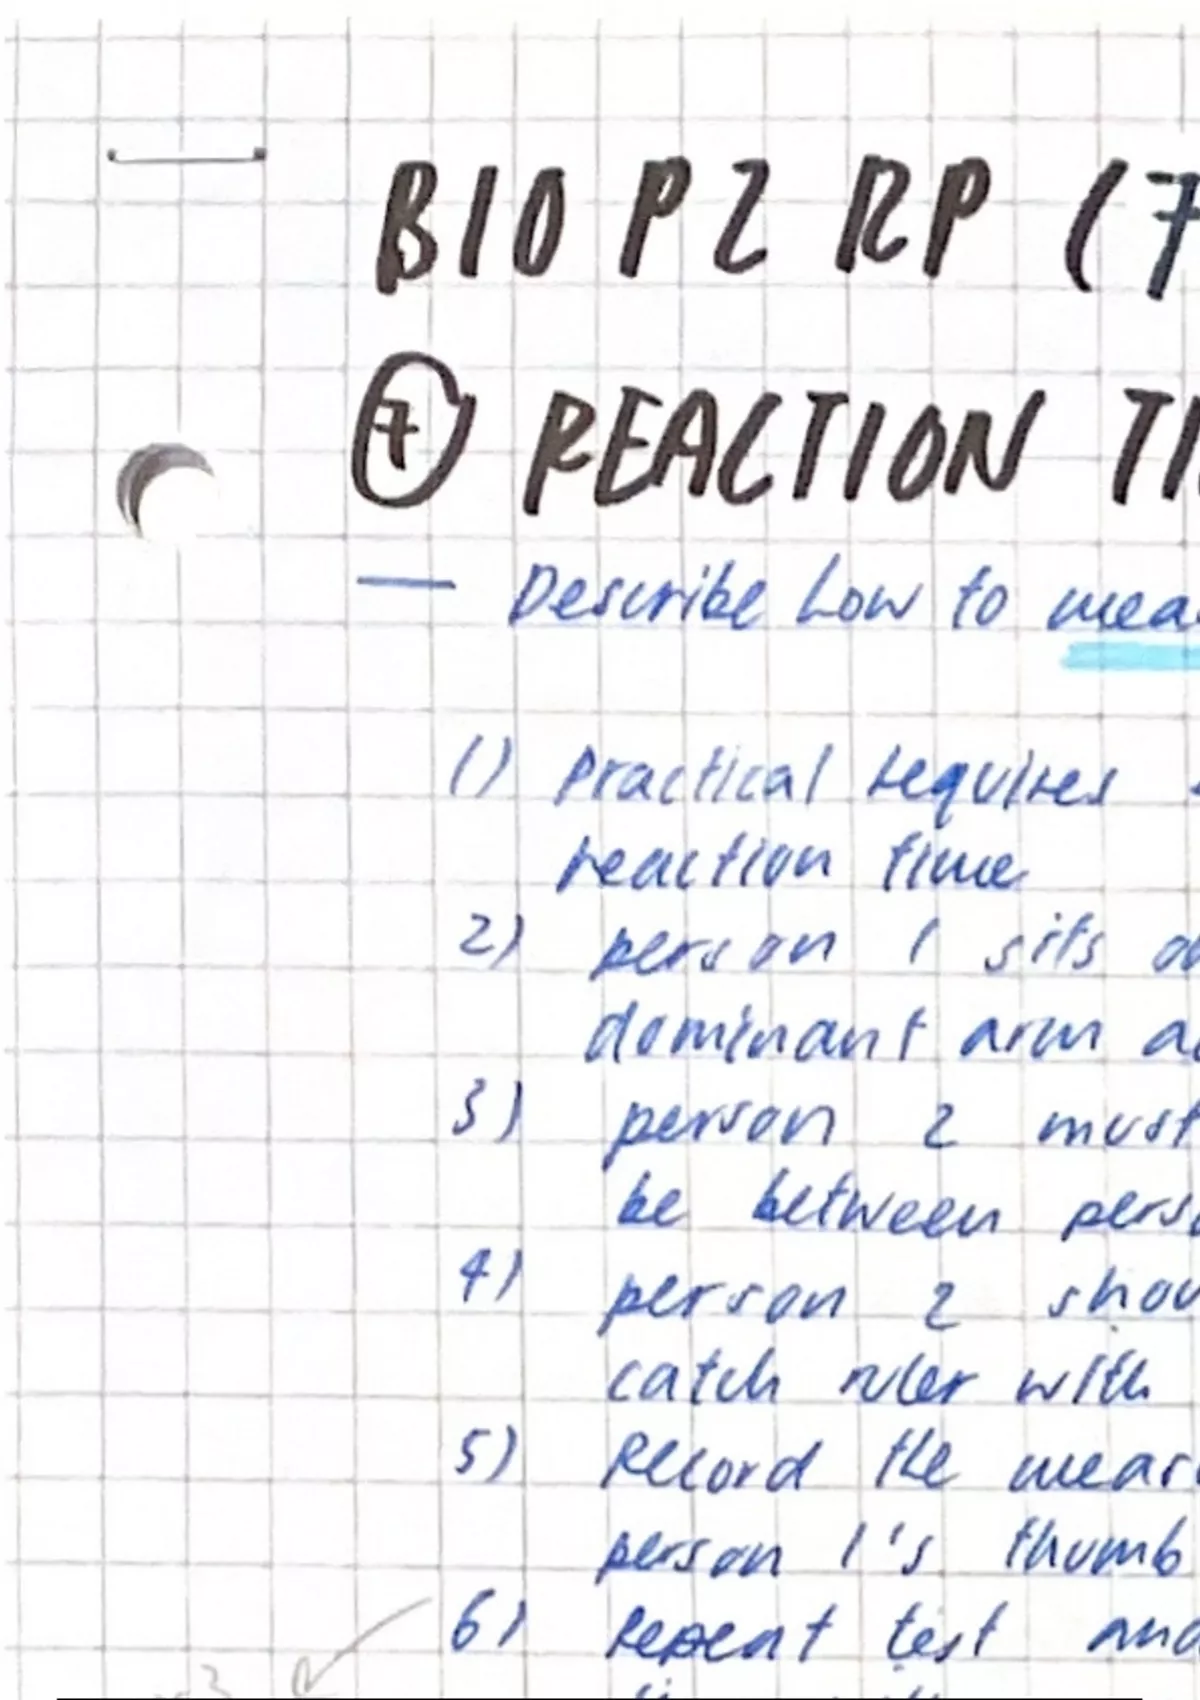 BIO P2 RP (7
7 REACTION TI
— Describe how to mea
1) Practical requires
reaction time
2) person 1 sits o
dominant arm a
3) person 2 must
be between pers
4) person 2 shou
catch ruler with
5) Record the meas
person 1's thumb
6) Repeat test and